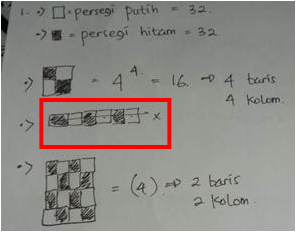 1. -> □ = persegi putih = 32.
-> ■ = persegi hitam = 32.
•> = 4⁴ = 16. => 4 baris
4 kolom.
•> x
•> = (4) => 2 baris
2 kolom.